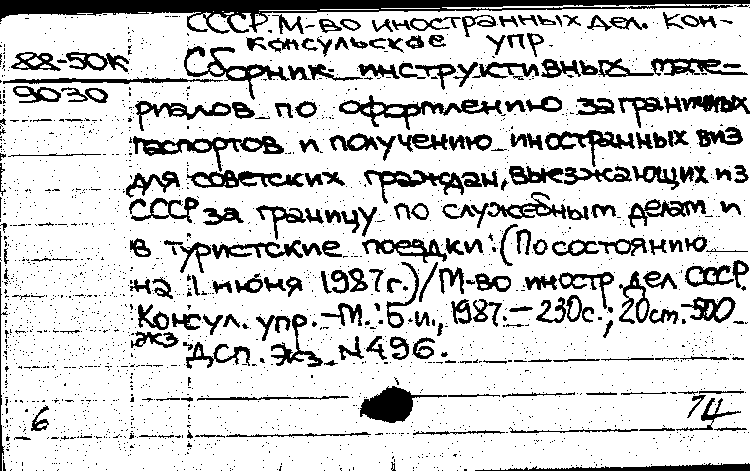 СССР. М-во иностранных дел. Кон-
Консульское упр.
88-50К Сборник инструктивных мате-
9030 риалов по оформлению заграничных
паспортов и получению иностранных виз
для советских граждан, выезжающих из
СССР за границу по служебным делам и
в туристские поездки: (По состоянию
на 1 июня 1987г.)/М-во иностр. дел СССР.
Консул. упр. – М.: Б.и., 1987. – 230с.; 20см. – 500
экз. ДСП. Экз. N 496.
6 74